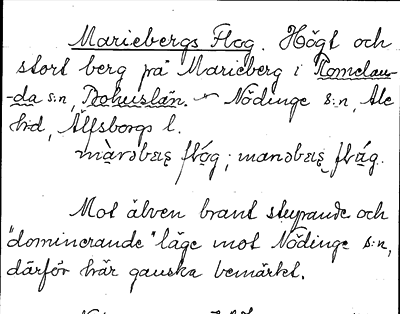 Mariebergs Flog. Högt och
stort berg på Marieberg i Romelan-
-da s:n, Bohuslän. Nödinge s:n, Ale
hd, Älfsborgs l.
Mot älven brant stupande och
"dominerande" läge mot Nödinge s:n,
därför här ganska bemärkt.